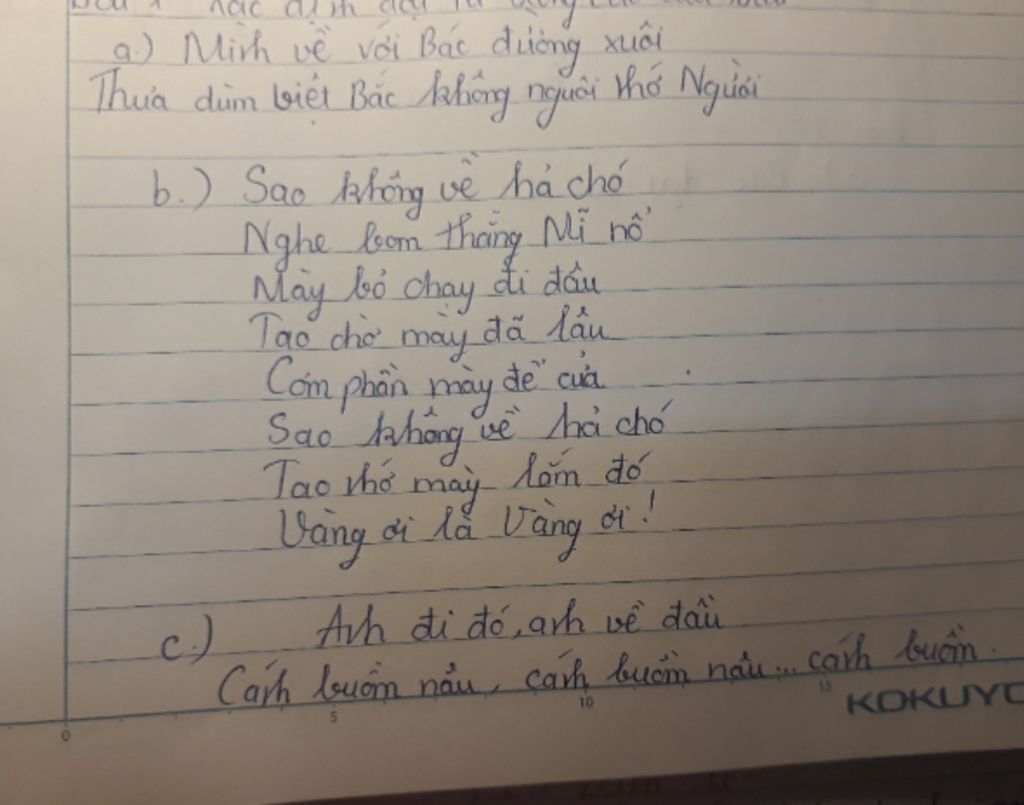 a.) Mình về với Bác đường xuôi
Thưa dùm biệt Bác không nguôi nhớ Người
b.) Sao không về hả chó
Nghe bom thằng Mĩ nổ
Mày bỏ chạy đi đâu
Tao chờ mày đã lâu
Cơm phần mày để cửa
Sao không về hả chó
Tao nhớ mày lắm đó
Vàng ơi là Vàng ơi!
c.) Anh đi đó, anh về đâu
Cánh buồm nâu, cánh buồm nâu... cánh buồm.
0 5 10 15
KOKUYO